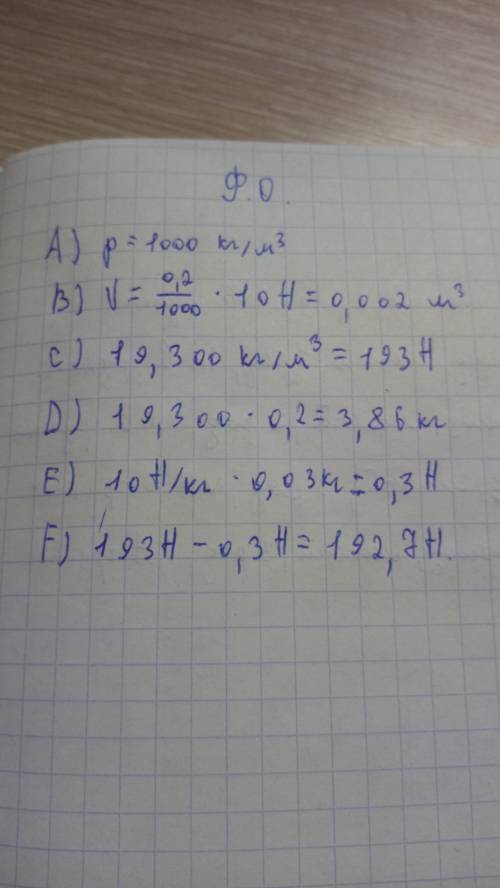 Ф.О.
A) p = 1000 кг/м³
B) V = 0,2/1000 · 10 Н = 0,002 м³
C) 19,300 кг/м³ = 193 Н
D) 19,300 · 0,2 = 3,86 кг
E) 10 Н/кг · 0,03 кг = 0,3 Н
F) 193 Н - 0,3 Н = 192,7 Н.